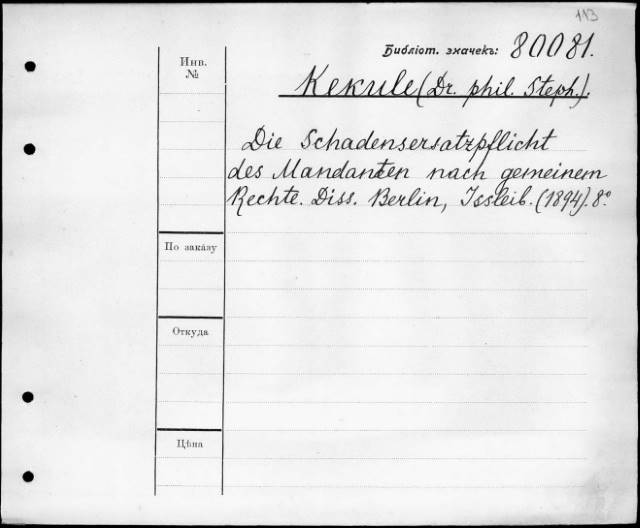 113
Библіот. значекъ: 80081.
Инв.
№
Kekule (Dr. phil. Steph.).
Die Schadensersatzpflicht
des Mandanten nach gemeinem
Rechte. Diss. Berlin, Issleib. (1894). 8°
По заказу
Откуда
Цѣна